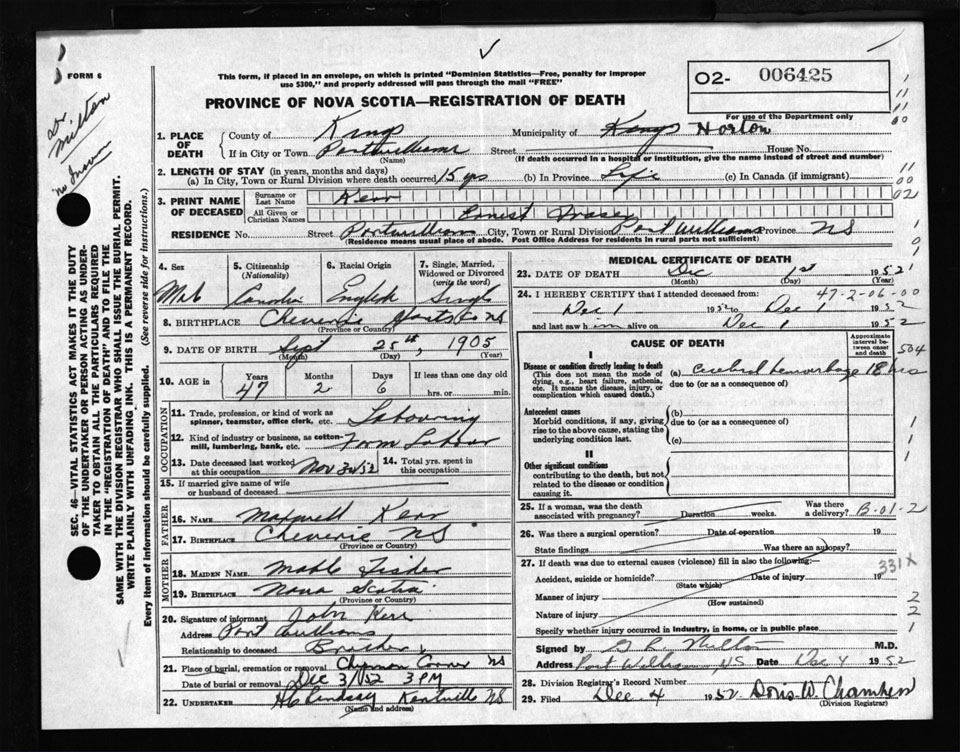 FORM 6
Dr. Milton
This form, if placed in an envelope, on which is printed "Dominion Statistics—Free, penalty for improper
use $300," and properly addressed will pass through the mail "FREE"
O2- 006425
For use of the Department only
PROVINCE OF NOVA SCOTIA—REGISTRATION OF DEATH
1. PLACE OF DEATH
County of Kings Municipality of Kings Horton
If in City or Town Port Williams Street House No.
(Name) (If death occurred in a hospital or institution, give the name instead of street and number)
2. LENGTH OF STAY (in years, months and days)
(a) In City, Town or Rural Division where death occurred 15 yrs (b) In Province Life (c) In Canada (if immigrant)
3. PRINT NAME OF DECEASED
Surname or Last Name Kerr
All Given or Christian Names Ernest Fraser
RESIDENCE No. Street Port Williams City, Town or Rural Division Port Williams Province NS
(Residence means usual place of abode. Post Office Address for residents in rural parts not sufficient)
4. Sex
5. Citizenship (Nationality)
6. Racial Origin
7. Single, Married, Widowed or Divorced (write the word)
English Single
8. BIRTHPLACE Cheverie Hants Co NS
(Province or Country)
9. DATE OF BIRTH Sept 25th, 1905
(Month) (Day) (Year)
10. AGE in Years Months Days If less than one day old
47 2 6 hrs. or min.
OCCUPATION
11. Trade, profession, or kind of work as spinner, teamster, office clerk, etc. Labouring
12. Kind of industry or business, as cotton-mill, lumbering, bank, etc. Farm Labor
13. Date deceased last worked at this occupation Nov 30/52
14. Total yrs. spent in this occupation
15. If married give name of wife or husband of deceased
FATHER
16. NAME Maxwell Kerr
17. BIRTHPLACE Cheverie NS
(Province or Country)
MOTHER
18. MAIDEN NAME Fisher
19. BIRTHPLACE Nova Scotia
(Province or Country)
20. Signature of informant John Kerr
Address Port Williams
Relationship to deceased Brother
21. Place of burial, cremation or removal Corner NS
Date of burial or removal Dec 3/52 3 PM
22. UNDERTAKER Lindsay Kentville NS
(Name and address)
MEDICAL CERTIFICATE OF DEATH
23. DATE OF DEATH Dec 1st 1952
(Month) (Day) (Year)
24. I HEREBY CERTIFY that I attended deceased from: 47-2-06-00
Dec 1 1952 to Dec 1 1952
and last saw him alive on Dec 1 1952
CAUSE OF DEATH
Approximate interval between onset and death
504
I
Disease or condition directly leading to death
(This does not mean the mode of dying, e.g., heart failure, asthenia, etc. It means the disease, injury, or complication which caused death.)
(a) cerebral hemorrhage 18 hrs
due to (or as a consequence of)
Antecedent causes
Morbid conditions, if any, giving rise to the above cause, stating the underlying condition last.
(b)
due to (or as a consequence of)
(c)
II
Other significant conditions
contributing to the death, but not related to the disease or condition causing it.
25. If a woman, was the death associated with pregnancy? Duration weeks. Was there a delivery? B-01-2
26. Was there a surgical operation? Date of operation 19
State findings Was there an autopsy?
27. If death was due to external causes (violence) fill in also the following:— 331X
Accident, suicide or homicide? Date of injury 19
(State which)
Manner of injury
(How sustained)
Nature of injury
Specify whether injury occurred in industry, in home, or in public place
Signed by Milton M.D.
Address Port Williams, NS Date Dec 4 1952
28. Division Registrar's Record Number
29. Filed Dec. 4 1952 Doris W. Chambers
(Division Registrar)
SEC. 46—VITAL STATISTICS ACT MAKES IT THE DUTY
OF THE UNDERTAKER OR PERSON ACTING AS UNDER-
TAKER TO OBTAIN ALL THE PARTICULARS REQUIRED
IN THE "REGISTRATION OF DEATH" AND TO FILE THE
SAME WITH THE DIVISION REGISTRAR WHO SHALL ISSUE THE BURIAL PERMIT.
WRITE PLAINLY WITH UNFADING INK. THIS IS A PERMANENT RECORD.
Every item of information should be carefully supplied. (See reverse side for instructions.)